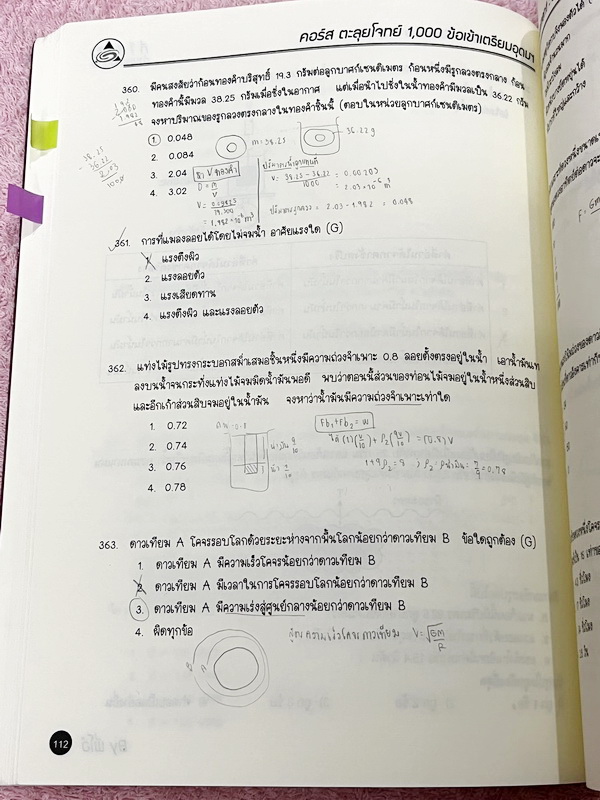 คอร์ส ตะลุยโจทย์ 1,000 ข้อเข้าเตรียมอุดมฯ
360. มีคนสงสัยว่าก้อนทองคำบริสุทธิ์ 19.3 กรัมต่อลูกบาศก์เซนติเมตร ก้อนหนึ่งมีรูกลวงตรงกลาง ก้อน
ทองคำนี้มีมวล 38.25 กรัมเมื่อชั่งในอากาศ แต่เมื่อนำไปชั่งในน้ำทองคำมีมวลเป็น 36.22 กรัม
จงหาปริมาณของรูกลวงตรงกลางในทองคำชิ้นนี้ (ตอบในหน่วยลูกบาศก์เซนติเมตร)
1. 0.048
2. 0.084
3. 2.04
4. 3.02
38.25
36.22
2.03
m = 38.25
36.22 g
หา V ทองคำ
D = m/V
19,300
= 1.982 × 10⁻⁶ m³
V = 38.25 - 36.22 / 1000 = 0.00203
= 2.03 × 10⁻⁶ m³
= 2.03 - 1.982 = 0.048
361. การที่แมลงลอยได้โดยไม่จมน้ำ อาศัยแรงใด (G)
1. แรงตึงผิว
2. แรงลอยตัว
3. แรงเสียดทาน
4. แรงตึงผิว และแรงลอยตัว
362. แท่งไม้รูปทรงกระบอกสม่ำเสมอชิ้นหนึ่งมีความถ่วงจำเพาะ 0.8 ลอยตั้งตรงอยู่ในน้ำ เอาน้ำมันเท
ลงบนน้ำจนกระทั่งแท่งไม้จมมิดน้ำมันพอดี พบว่าตอนนี้ส่วนของท่อนไม้จมอยู่ในน้ำหนึ่งส่วนสิบ
และอีกเก้าส่วนสิบจมอยู่ในน้ำมัน จงหาว่าน้ำมันมีความถ่วงจำเพาะเท่าใด
1. 0.72
2. 0.74
3. 0.76
4. 0.78
น้ำมัน 9/10
น้ำ 1/10
Fb₁ + Fb₂ = W
ได้ (1)(V/10) + ρ₂(9V/10) = (0.8)V
1 + 9ρ₂ = 8 ; ρ₂ = ρน้ำมัน = 7/9 = 0.78
363. ดาวเทียม A โคจรรอบโลกด้วยระยะห่างจากพื้นโลกน้อยกว่าดาวเทียม B ข้อใดถูกต้อง (G)
1. ดาวเทียม A มีความเร็วโคจรน้อยกว่าดาวเทียม B
2. ดาวเทียม A มีเวลาในการโคจรรอบโลกน้อยกว่าดาวเทียม B
3. ดาวเทียม A มีความเร่งสู่ศูนย์กลางน้อยกว่าดาวเทียม B
4. ผิดทุกข้อ
สูตร ความเร็วโคจร ดาวเทียม V = √GM/R
B A
112